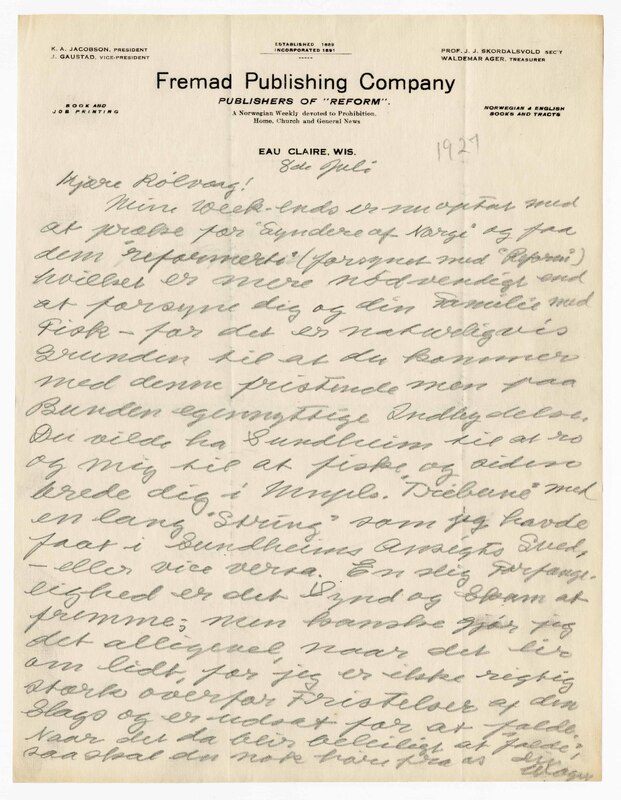 K. A. JACOBSON, PRESIDENT
J. GAUSTAD, VICE-PRESIDENT
ESTABLISHED 1889
INCORPORATED 1891
PROF. J. J. SKORDALSVOLD SEC'Y
WALDEMAR AGER, TREASURER
Fremad Publishing Company
PUBLISHERS OF "REFORM".
A Norwegian Weekly devoted to Prohibition,
Home, Church and General News
BOOK AND
JOB PRINTING
NORWEGIAN & ENGLISH
BOOKS AND TRACTS
EAU CLAIRE, WIS.
1927
8de Juli
Kjære Rölvaag!
Mine Week-ends er nu optat med
at præke for Syndere af Norge og faa
dem "reformerte" (forsynet med "Reform")
hvilket er mere nödvendigt end
at forsyne dig og din Familie med
Fisk – for det er naturligvis
Grunden til at du kommer
med denne fristende men paa
Bunden egennyttige Indbydelse.
Du vilde ha Sundheim til at ro
og mig til at fiske og siden
brede dig i Mnpls. "Tribune" med
en lang "String" som jeg havde
faat i Sundheims Ansigts Sved,
– eller vice versa. En slig Forfænge-
lighed er det Synd og Skam at
fremme; men kanske gjör jeg
det alligevel, naar det lir
om lidt, for jeg er ikke rigtig
stærk overfor Fristelser af den
Slags og er udsat for at falde.
Naar det da blir beleiligt at falde,
saa skal du nok höre fra os
Din
W Ager